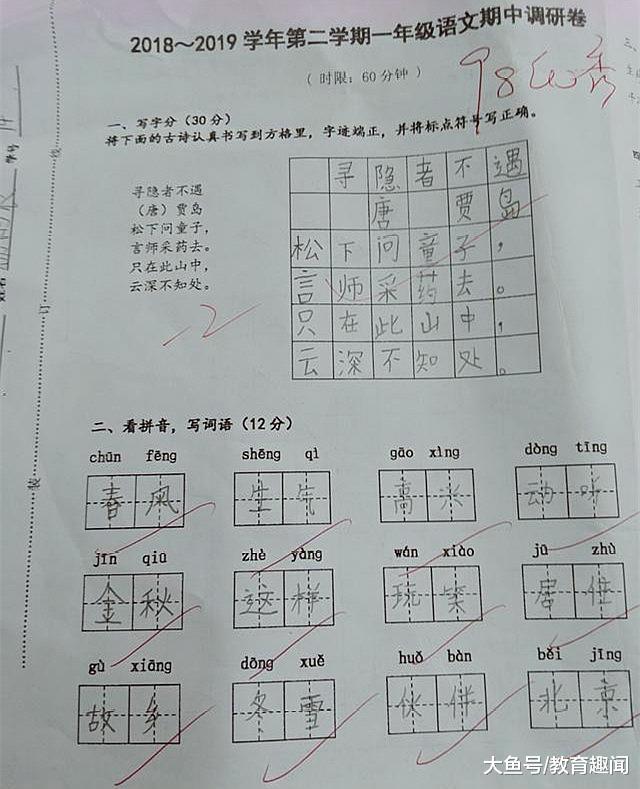 2018～2019 学年第二学期一年级语文期中调研卷
（时限：60 分钟）
98 优秀
一、写字分（30 分）
将下面的古诗认真书写到方格里，字迹端正，并将标点符号写正确。
寻隐者不遇
（唐）贾岛
松下问童子，
言师采药去。
只在此山中，
云深不知处。
寻隐者不遇
唐 贾岛
松下问童子，
言师采药去。
只在此山中，
云深不知处。
-2
二、看拼音，写词语（12 分）
chūn fēng shēng qì gāo xìng dòng tīng
春风 生气 高兴 动听
jīn qiū zhè yàng wán xiào jū zhù
金秋 这样 玩笑 居住
gù xiāng dōng xuě huǒ bàn běi jīng
故乡 冬雪 伙伴 北京
大鱼号/教育趣闻